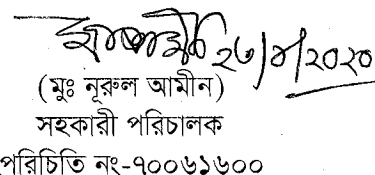 ২৩/৮/২০২০
(মুঃ নূরুল আমীন)
সহকারী পরিচালক
পরিচিতি নং-৭০০৬১৬০০